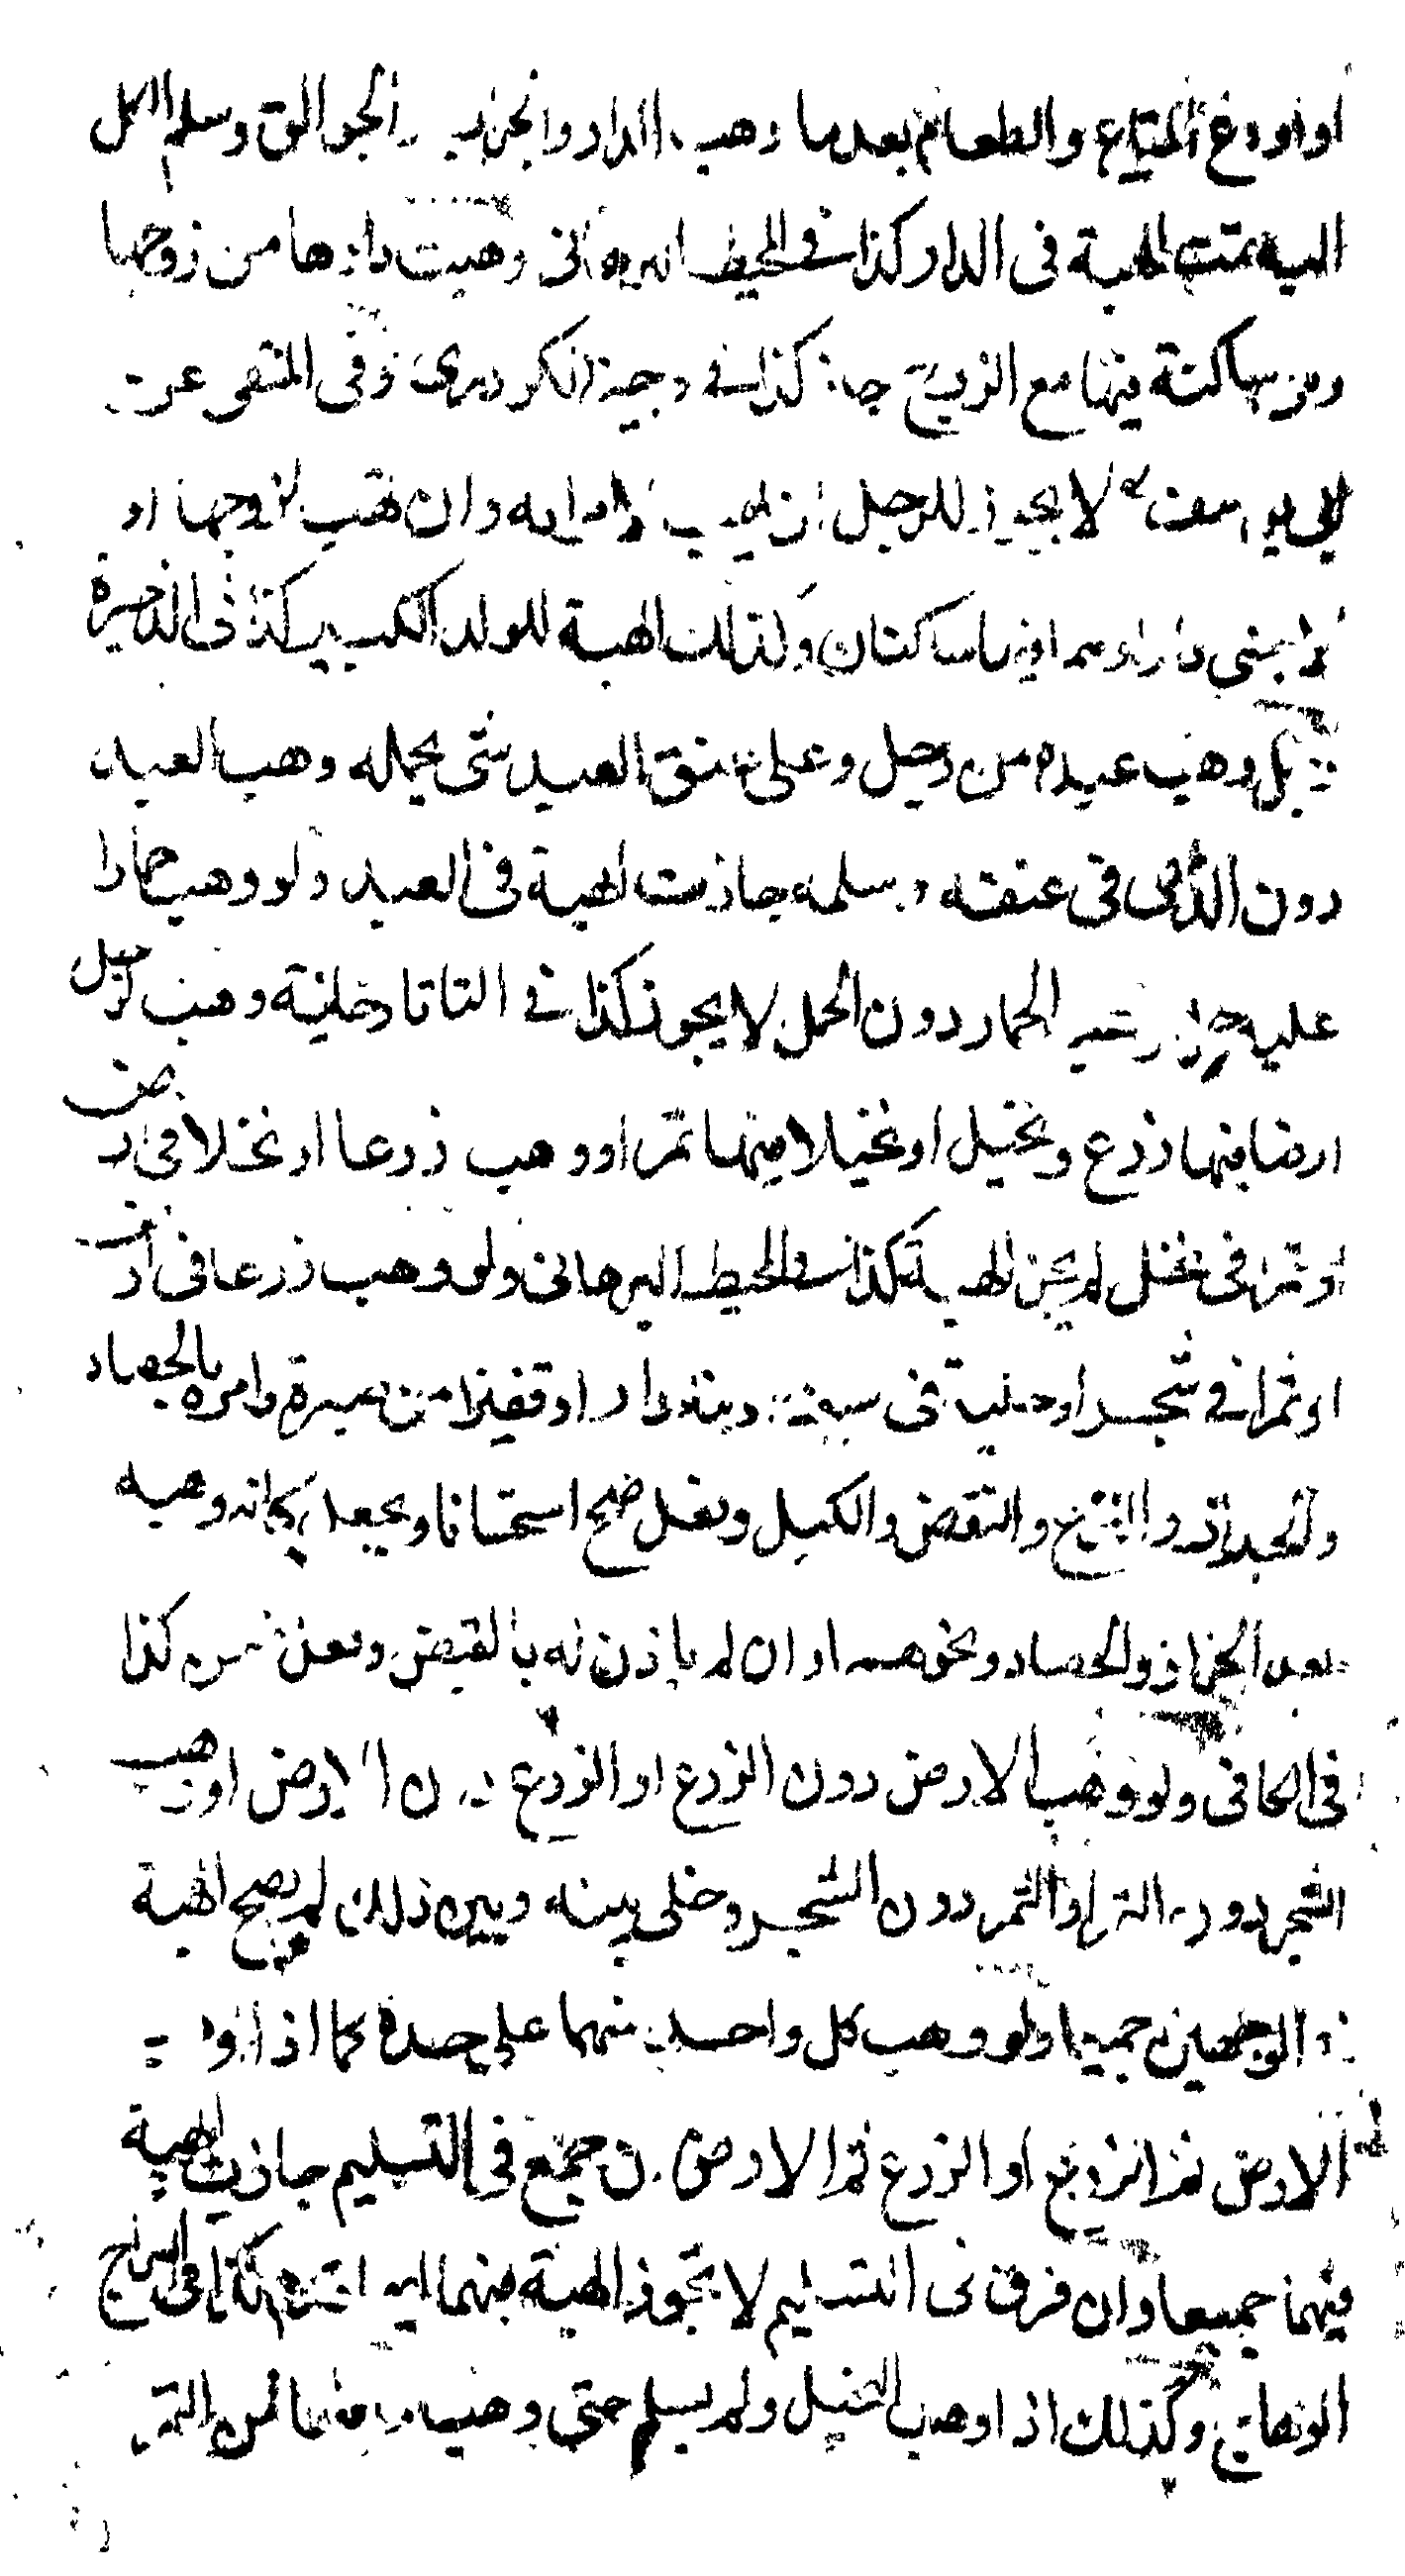 او اودع المتاع والطعام بعد ما وهب الدار والجراب والجوالق وسلم الكل
اليه تمت الهبة في الدار كذا في المحيط البرهاني وهبت دارها من زوجها
وهي ساكنة فيها مع الزوج جاز كذا في وجيز الكردري وفي المنتقى عن
ابي يوسف لا يجوز للرجل ان يهب لامراته وان تهب لزوجها او
لاجنبي دارا وهما فيها ساكنان وكذلك الهبة للولد الكبير كذا في الذخيرة
رجل وهب عبده من رجل وعلى عنق العبد شيء يحمله وهب العبد
دون الذي في عنقه وسلمه جازت الهبة في العبد ولو وهب حمارا
عليه حمل وهب الحمار دون الحمل لا يجوز كذا في التاتارخانية وهب لرجل
ارضا فيها زرع ونخيل او نخيلا فيها تمر او وهب زرعا او نخلا في ارض
او تمرا في نخل لم يجز الهبة كذا في المحيط البرهاني ولو وهب زرعا في ارض
او تمرا في شجر او حلية في سيف وبناء دار او قفيزا من صبرة وامره بالحصاد
والجداد والنزع والنقض والكيل وفعل صح استحسانا ويجعل كانه وهبه
بعد الجذاذ والحصاد ونحوهما وان لم ياذن له بالقبض وفعل ضمن كذا
في الكافي ولو وهب الارض دون الزرع او الزرع دون الارض او وهب
الشجر دون التمر او التمر دون الشجر وخلى بينه وبين ذلك لم يصح الهبة
في الوجهين جميعا ولو وهب كل واحد منهما على حدة كما اذا وهب
الارض ثم الزرع او الزرع ثم الارض ان جمع في التسليم جازت الهبة
فيهما جميعا وان فرق في التسليم لا تجوز الهبة فيهما ايهما قدم كذا في السراج
الوهاج وكذلك اذا وهب النخيل ولم يسلم حتى وهب ما فيها من التمر